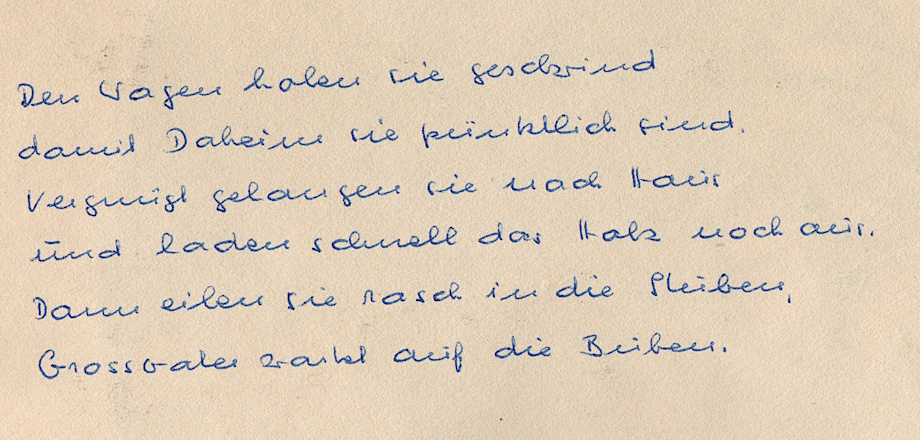 Den Wagen holen sie geschwind
damit Daheim sie pünktlich sind.
Vergnügt gelangen sie nach Haus
und laden schnell das Holz noch aus.
Dann eilen sie rasch in die Stuben,
Grossvater wartet auf die Buben.